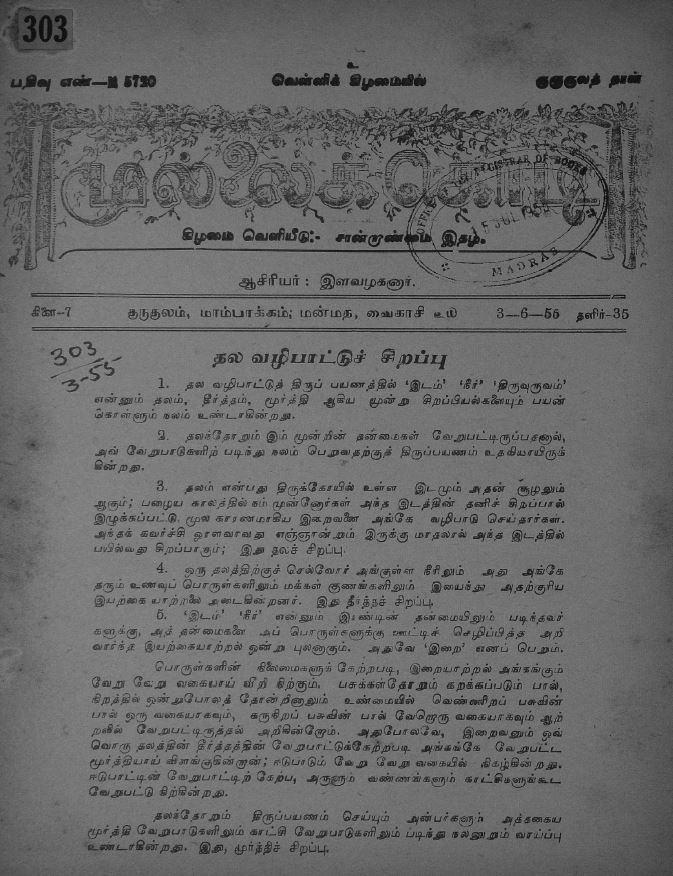 303
உ
பதிவு எண்—M 5720 வெள்ளிக் கிழமையில் குருகுலத் தான்
முல்லைக்கொடி
OFFICE OF THE REGISTRAR OF BOOKS
JUL 195
MADRAS
கிழமை வெளியீடு:- சான்றாண்மை இதழ்.
ஆசிரியர் : இளவழகனார்.
கிளை-7 குருதலம், மாம்பாக்கம்; மன்மத, வைகாசி 3-6-55 தளிர்-35
303
3-55
தல வழிபாட்டுச் சிறப்பு
1. தல வழிபாட்டுத் திருப் பயணத்தில் ‘இடம்’ ‘நீர்’ ‘திருவுருவம்’
என்னும் தலம், தீர்த்தம், மூர்த்தி ஆகிய மூன்று சிறப்பியல்களையும் பயன்
கொள்ளும் நலம் உண்டாகின்றது.
2. தலந்தோறும் இம் மூன்றின் தன்மைகள் வேறுபட்டிருப்பதனால்,
அவ் வேறுபாடுகளிற் படிந்து நலம் பெறுவதற்குத் திருப்பயணம் உதவியாயிருக்
கின்றது.
3. தலம் என்பது திருக்கோயில் உள்ள இடமும் அதன் சூழலும்
ஆகும்; பழைய காலத்தில் நம் முன்னோர்கள் அந்த இடத்தின் தனிச் சிறப்பால்
இழுக்கப்பட்டு, மூல காரணமாகிய இறைவனை அங்கே வழிபாடு செய்தார்கள்.
அந்தக் கவர்ச்சி ஓரளவாவது எஞ்ஞான்றும் இருக்கு மாதலால் அந்த இடத்தில்
பயில்வது சிறப்பாகும்; இது தலச் சிறப்பு.
4. ஒரு தலத்திற்குச் செல்வோர் அங்குள்ள நீரிலும் அது அங்கே
தரும் உணவுப் பொருள்களிலும் மக்கள் குணங்களிலும் இயைந்து அதற்குரிய
இயற்கை யாற்றலை அடைகின்றனர். இது தீர்த்தச் சிறப்பு.
5. ‘இடம்’ ‘நீர்’ என்னும் இரண்டின் தன்மையிலும் படிந்தவர்
களுக்கு, அத் தன்மைகளை அப் பொருள்களுக்கு ஊட்டிச் செழிப்பித்த அறி
வார்ந்த இயற்கையாற்றல் ஒன்று புலனாகும். அதுவே ‘இறை’ எனப் பெறும்.
பொருள்களின் நிலைமைகளுக் கேற்றபடி, இறையாற்றல் அங்கங்கும்
வேறு வேறு வகையாய் வீறி நிற்கும். பசுக்கள்தோறும் கறக்கப்படும் பால்,
நிறத்தில் ஒன்றுபோலத் தோன்றினாலும் உண்மையில் வெண்ணிறப் பசுவின்
பால் ஒரு வகையாகவும், கருநிறப் பசுவின் பால் வேறொரு வகையாகவும் ஆற்
றலில் வேறுபட்டிருத்தல் அறிகின்றோம். அதுபோலவே, இறைவனும் ஒவ்
வொரு தலத்தின் தீர்த்தத்தின் வேறுபாட்டுக்கேற்றபடி அங்கங்கே வேறுபட்ட
மூர்த்தியாய் விளங்குகின்றான்; ஈடுபாடும் வேறு வேறு வகையில் நிகழ்கின்றது.
ஈடுபாட்டின் வேறுபாட்டிற் கேற்ப, அருளும் வண்ணங்களும் காட்சிகளுங்கூட
வேறுபட்டு நிற்கின்றது.
தலந்தோறும் திருப்பயணம் செய்யும் அன்பர்களும் அத்தகைய
மூர்த்தி வேறுபாடுகளிலும் காட்சி வேறுபாடுகளிலும் படிந்து நலனுறும் வாய்ப்பு
உண்டாகின்றது. இது, மூர்த்திச் சிறப்பு.